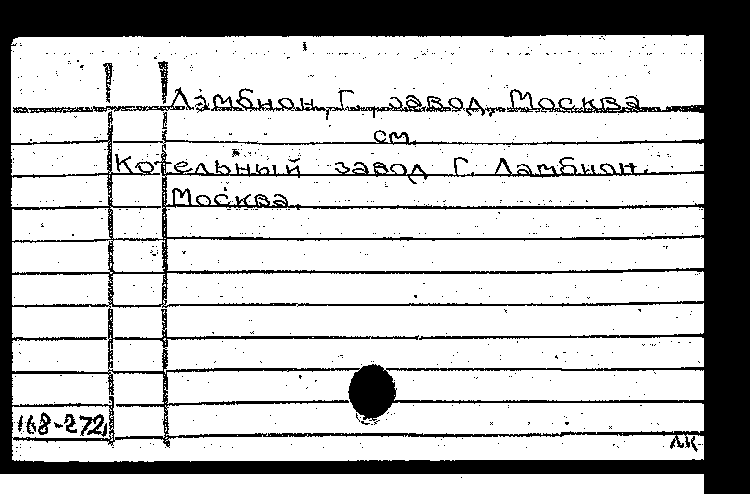 Ламбион, Г., завод, Москва
см.
Котельный завод Г. Ламбион.
Москва.
168-272
ЛК